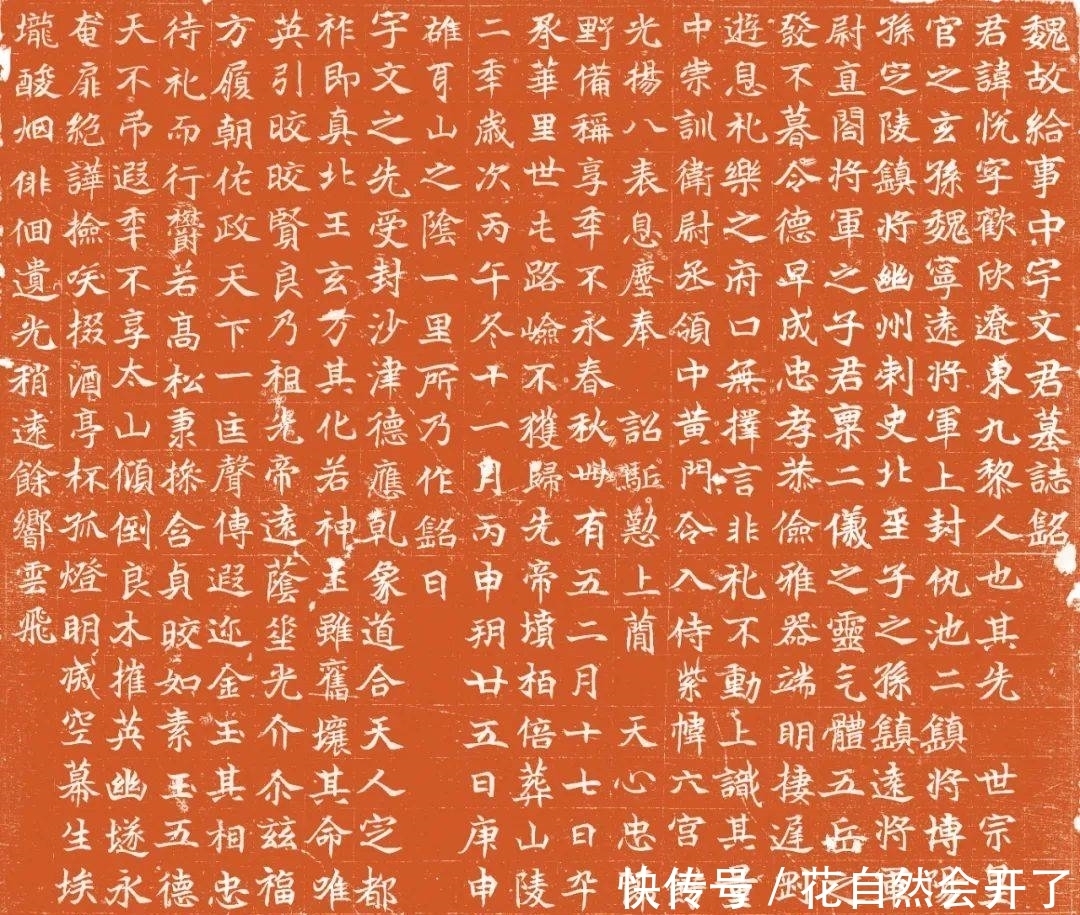 魏故給事中宇文君墓誌銘
君諱悅字歡欣遼東九黎人也其先 世宗
官之玄孫魏寧遠將軍上封仇池二鎮將博
孫定陵鎮將幽州刺史北平子之孫鎮遠將軍
尉直閤將軍之子君禀二儀之靈气體五岳之
發不暮令德早成忠孝恭儉雅器端明棲遲
遊息礼樂之府口無擇言非礼不動上識其
中崇訓衛尉丞領中黃門令入侍紫幃六宮
光揚八表息塵奉 詔駈懃上蕳 天心忠
野備稱享秊不永春秋卌有五二月十七日卒
承華里世屯路嶮不獲歸先帝墳栢倍葬山陵
二秊歲次丙午冬十一月丙申朔廿五日庚申
雄耳山之陰一里所乃作銘曰
宇文之先受封沙津德應乹象道合天人定都
祚即真北王玄方其化若神主雖舊壤其命唯
英引晈晈賢良乃祖光帝遠蔭㘴光介尒兹福
方履朝佐政天下一匡聲傳遐迩金玉其相忠
待礼而行欝若高松秉操含貞晈如素玉五德
天不吊遐秊不享太山傾倒良木摧英幽墜永
奄扉絶譁撿咲掇酒亭杯孤燈明滅空幕生埃
壠酸烟俳佪遺光稍遠餘響雲飛
快传号 / 花自然会开了